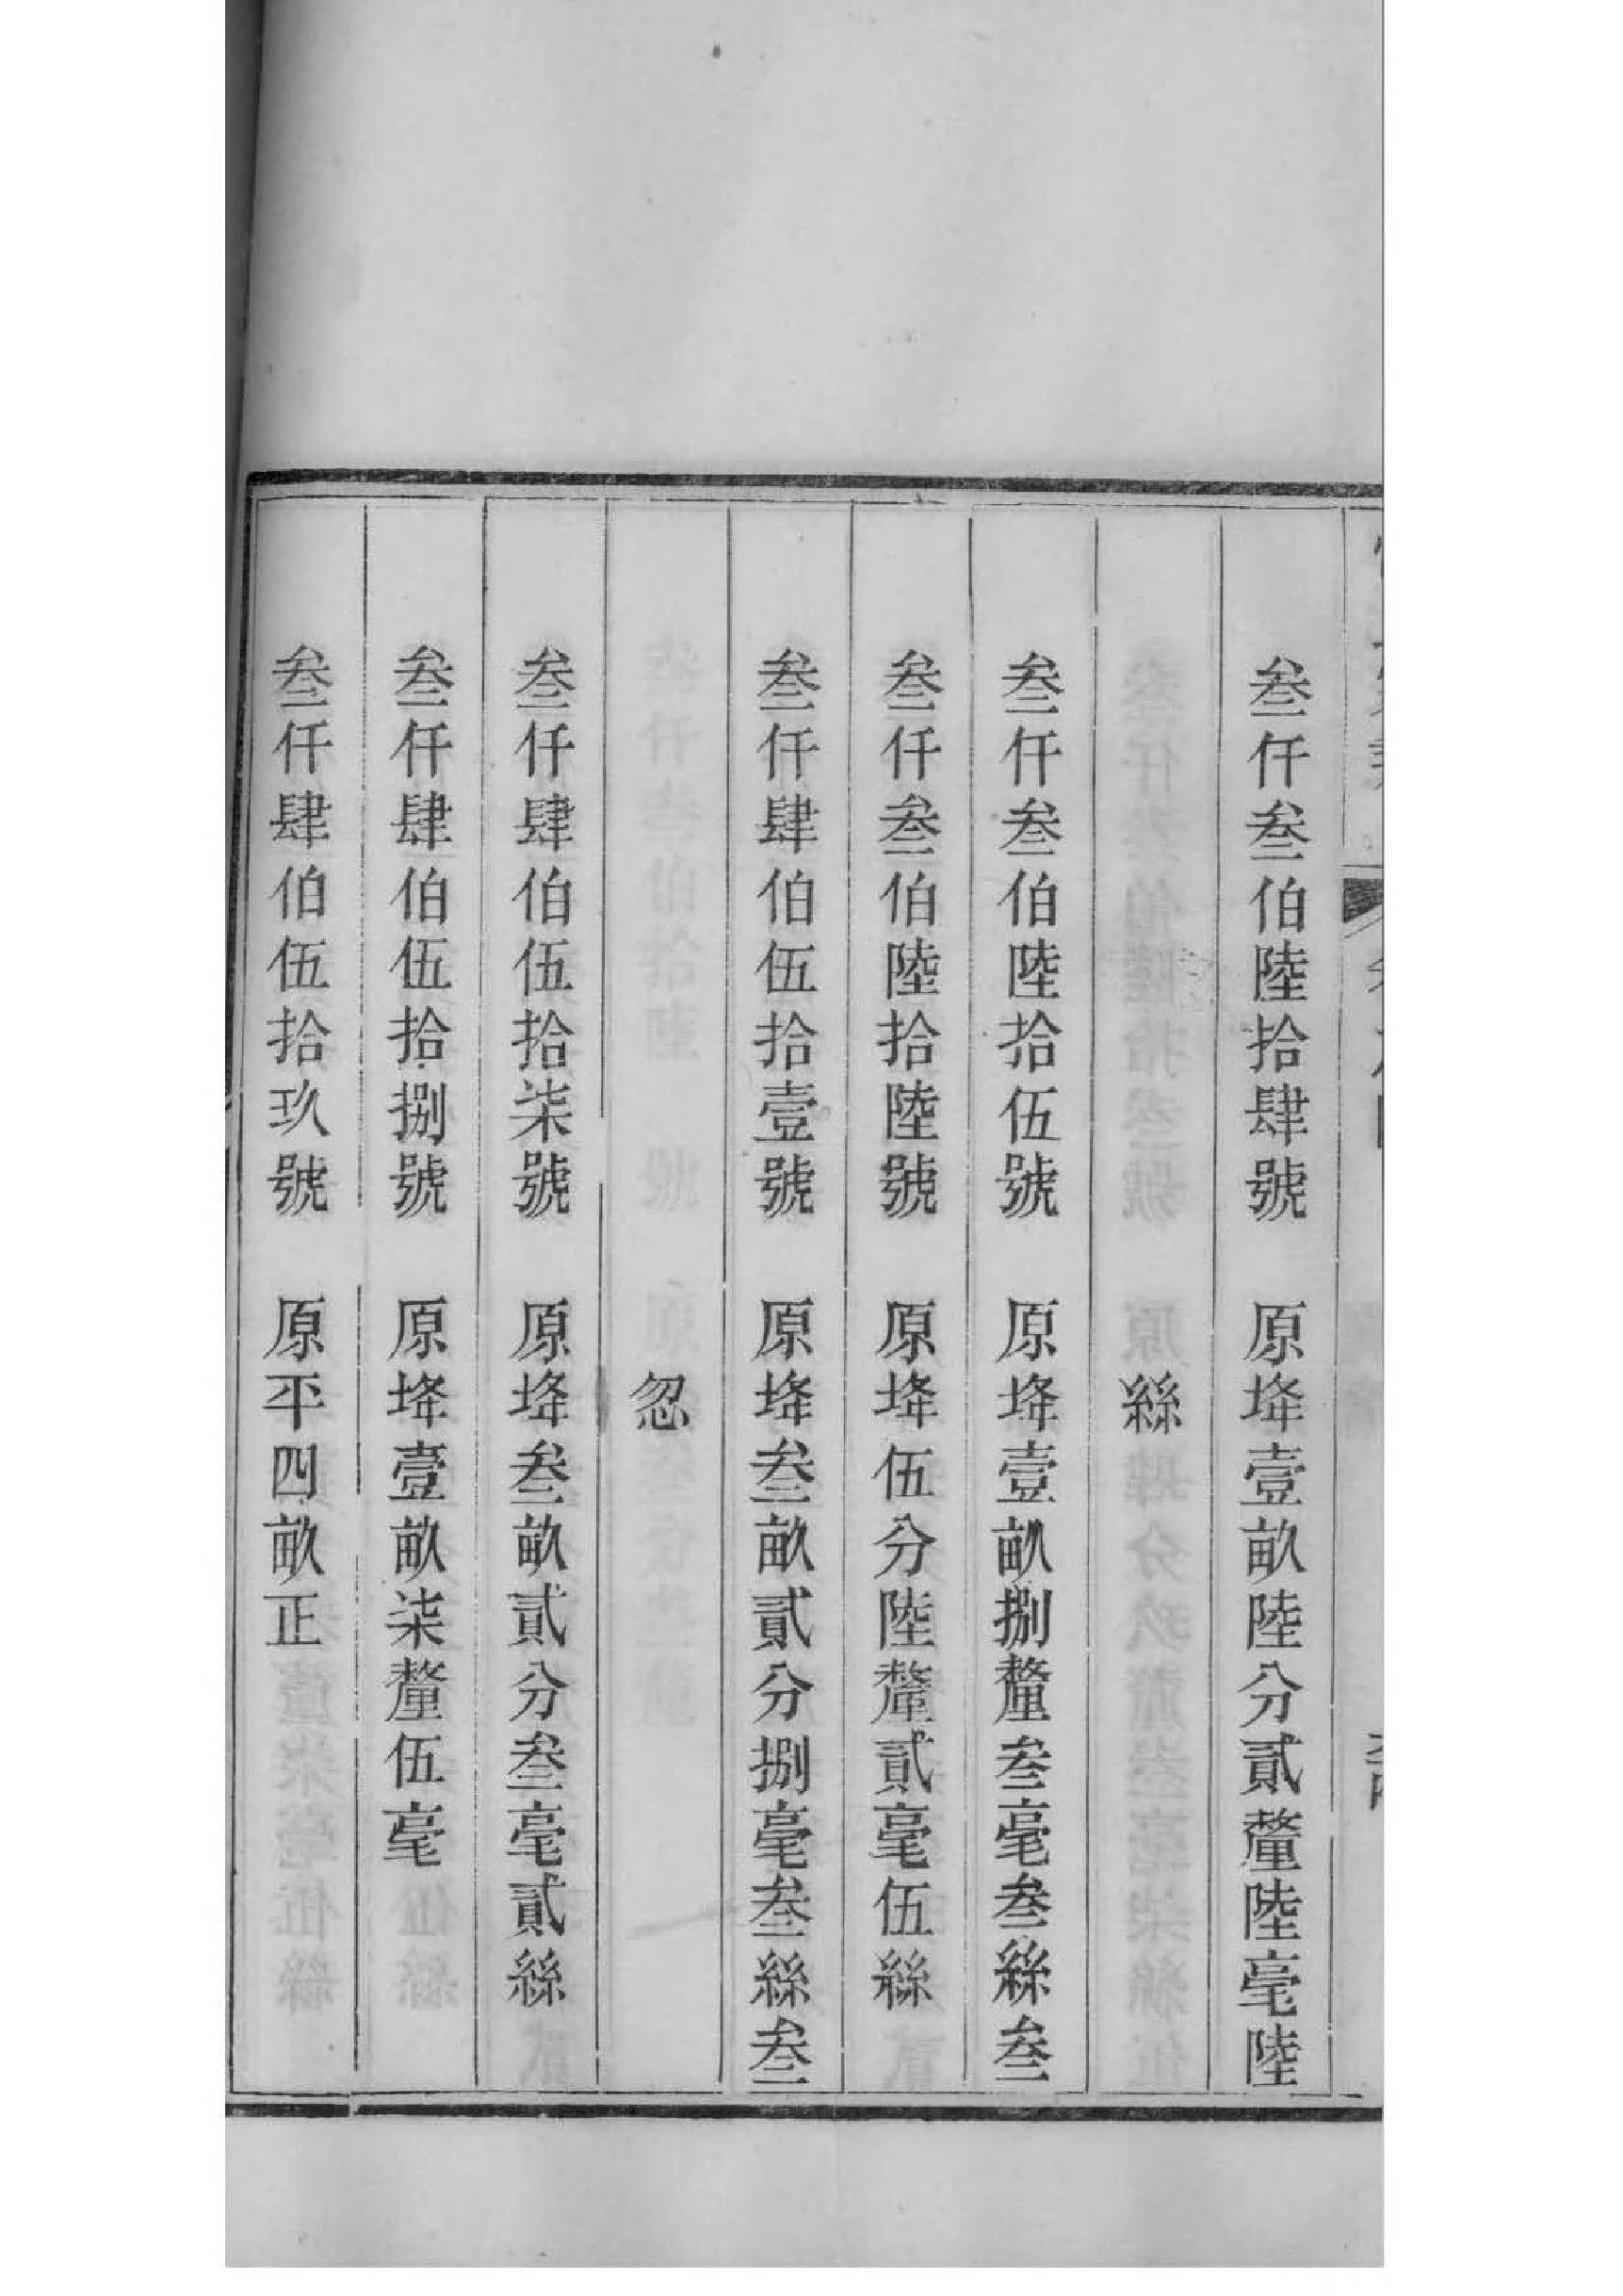 叁仟叁伯陸拾肆號　原埄壹畝陸分貳釐陸毫陸
絲
叁仟叁伯陸拾伍號　原埄壹畝捌釐叁毫叁絲叁
叁仟叁伯陸拾陸號　原埄伍分陸釐貳毫伍絲
叁仟肆伯伍拾壹號　原埄叁畝貳分捌毫叁絲叁
忽
叁仟肆伯伍拾柒號　原埄叁畝貳分叁毫貳絲
叁仟肆伯伍拾捌號　原埄壹畝柒釐伍毫
叁仟肆伯伍拾玖號　原平四畝正